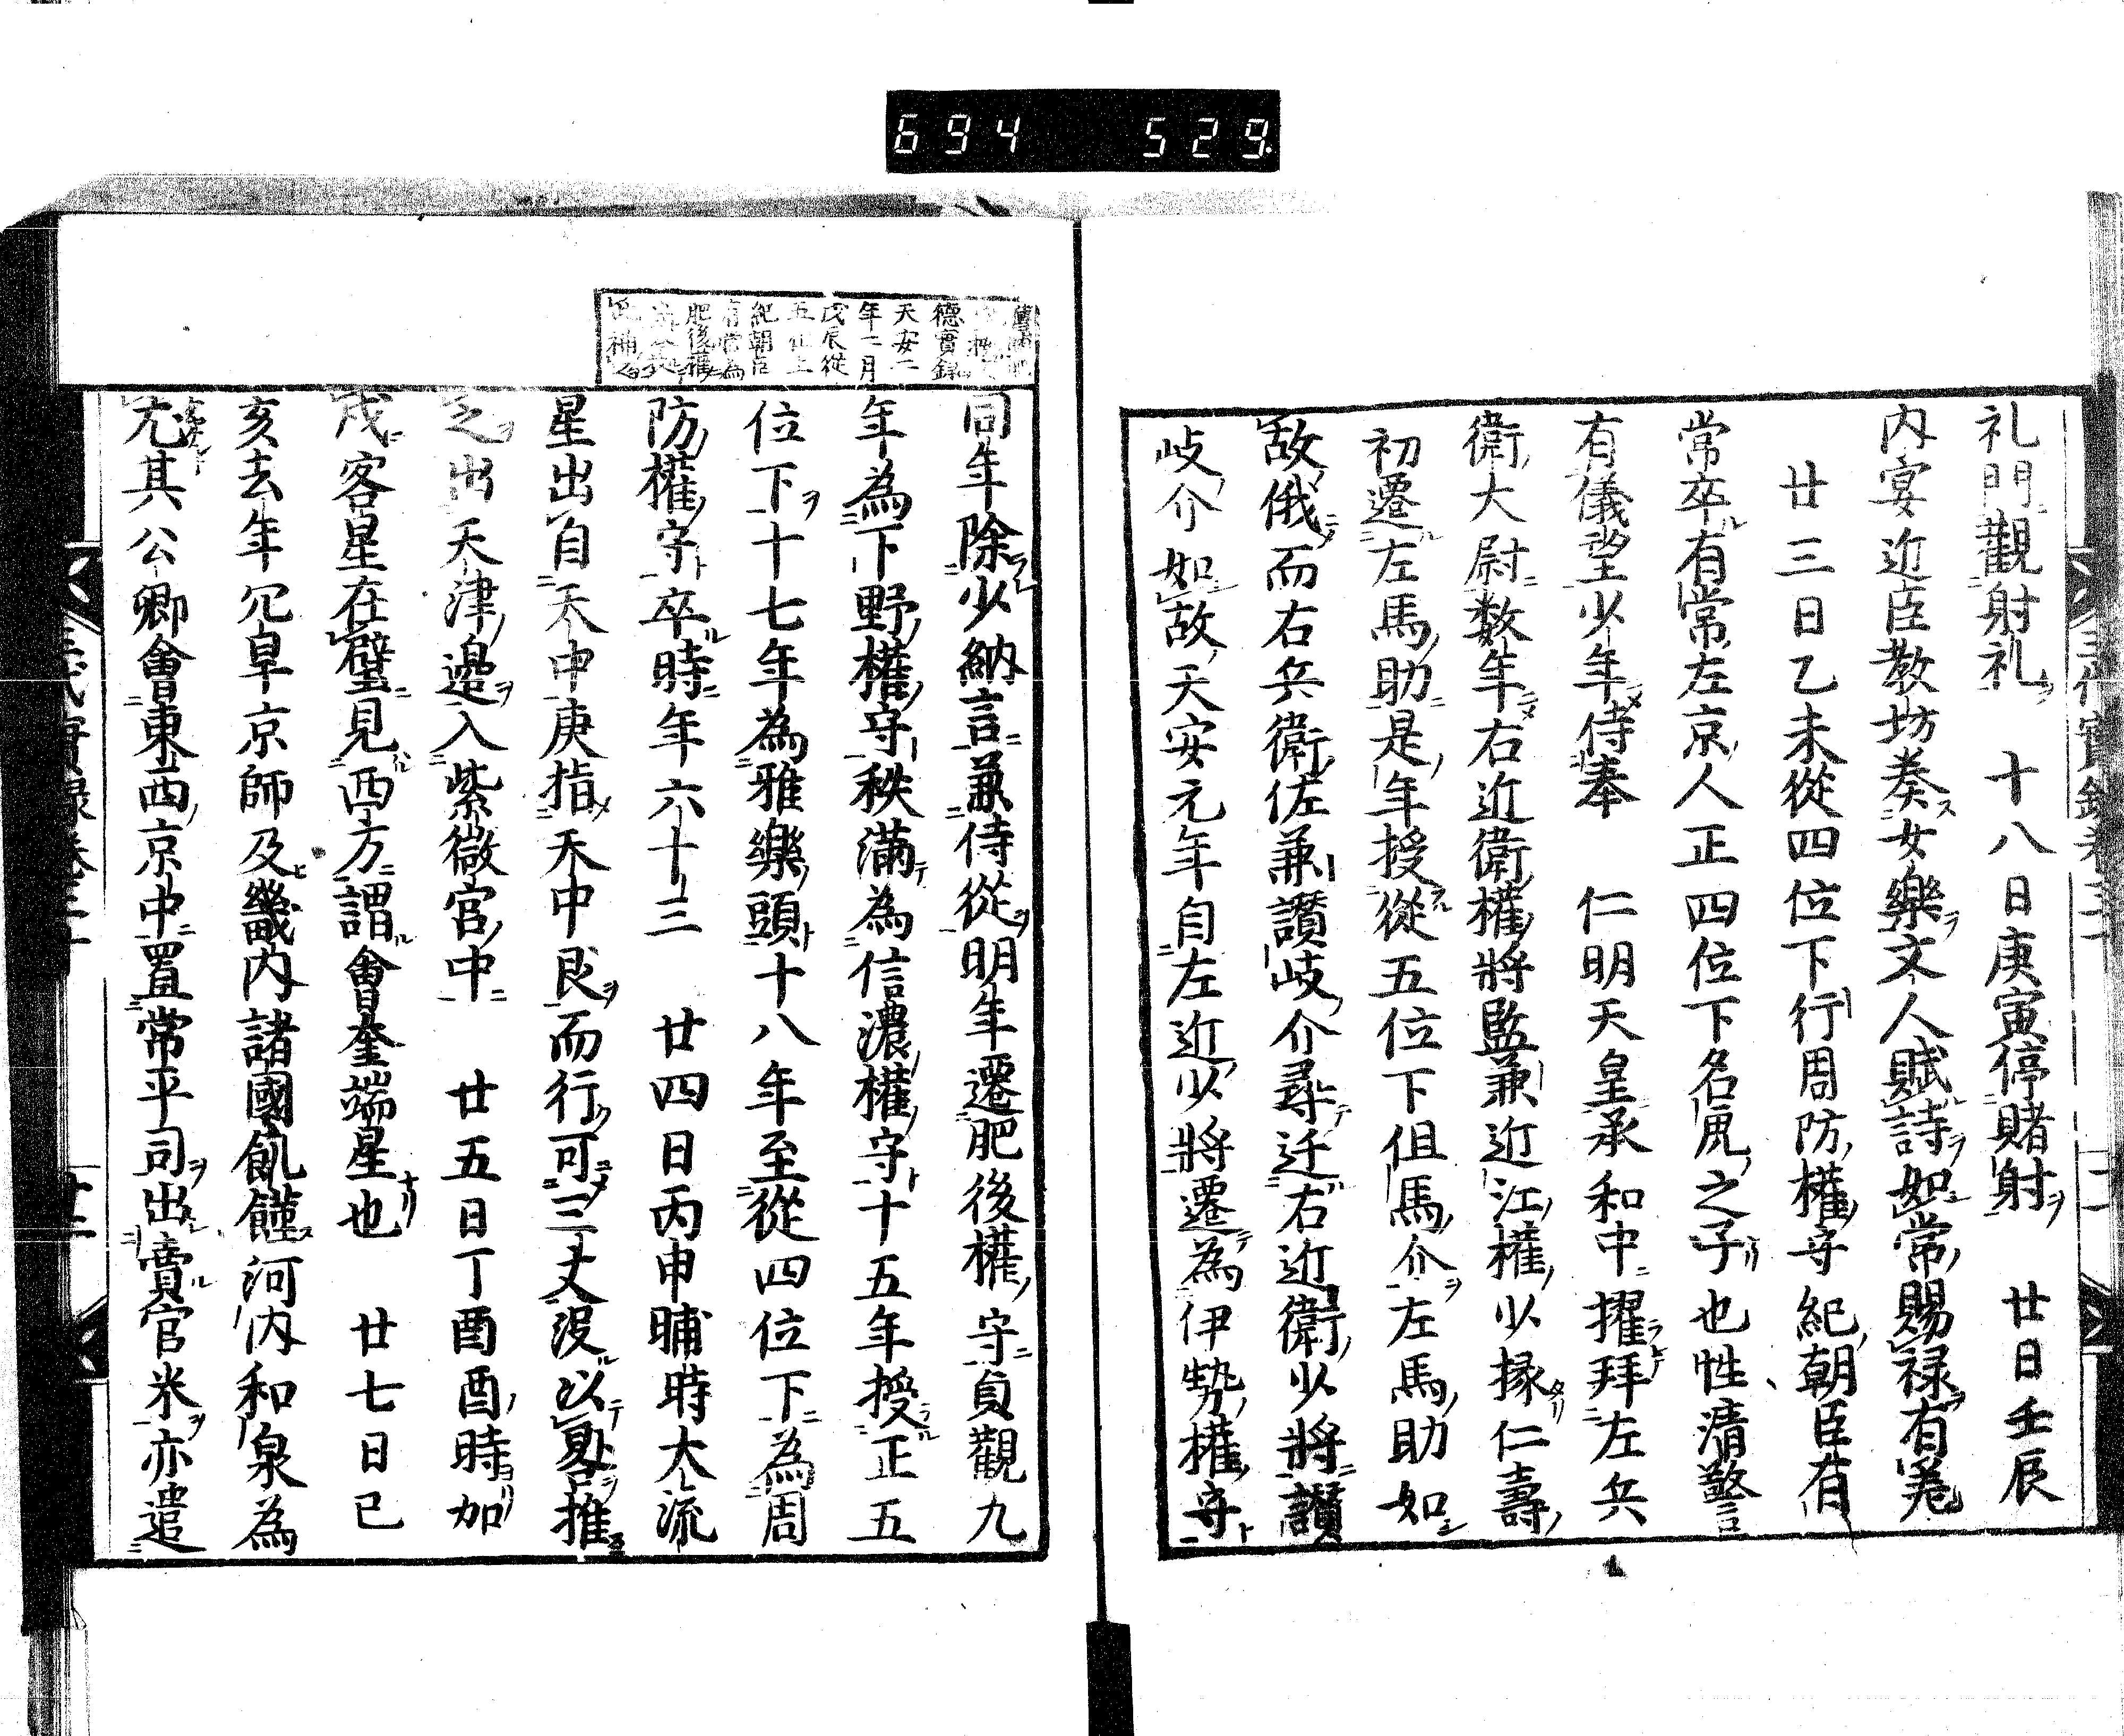 694 529
礼門觀射礼 十八日庚寅停賭射 廿日壬辰
内宴近臣教坊奏女樂文人賦詩如常賜禄有差
廿三日乙未從四位下行周防權守紀朝臣有
常卒有常左京人正四位下名虎之子也性清警
有儀望少年侍奉 仁明天皇承和中擢拜左兵
衛大尉数年右近衛權將監兼近江權少掾仁壽
初遷左馬助是年授從五位下但馬介左馬助如
故俄而右兵衛佐兼讃岐介尋迁右近衛少將讃
岐介如故天安元年自左近少將遷為伊勢權守
德實錄
天安二
年二月
戊辰從
五位上
紀朝臣
有常為
肥後權
同年除少納言兼侍從明年遷肥後權守貞觀九
年為下野權守秩滿為信濃權守十五年授正五
位下十七年為雅樂頭十八年至從四位下為周
防權守卒時年六十三 廿四日丙申晡時大流
星出自天中庚指天中艮而行可三丈没以夏呂推
之出天津邊入紫微宮中 廿五日丁酉酉時加
戌客星在壁見西方謂會奎端星也 廿七日己
亥去年旱京師及畿内諸國飢饉河内和泉為
尤其公卿會東西京中置常平司出賣官米亦遣